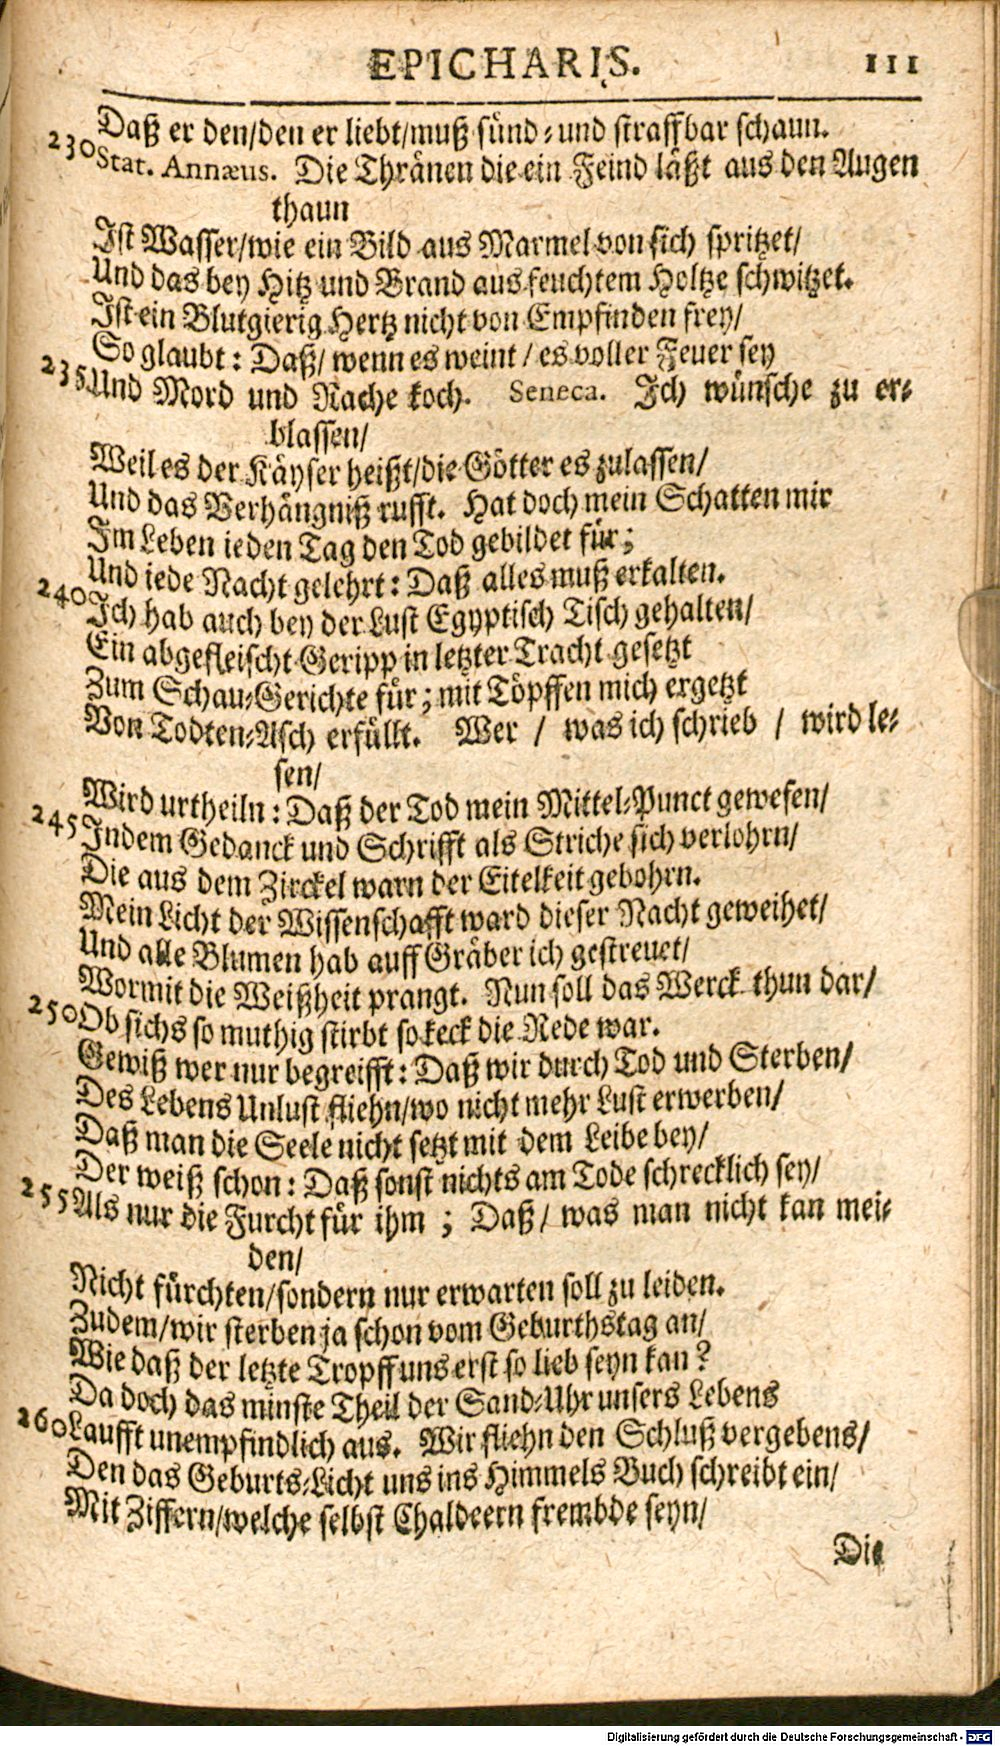 EPICHARIS. 111
Daß er den/den er liebt/muß sünd- und straffbar schaun.
230 Stat. Annæus. Die Thränen die ein Feind läßt aus den Augen
thaun
Ist Wasser/wie ein Bild aus Marmel von sich spritzet/
Und das bey Hitz und Brand aus feuchtem Holtze schwitzet.
Ist ein Blutgierig Hertz nicht von Empfinden frey/
So glaubt: Daß/ wenn es weint / es voller Feuer sey
235 Und Mord und Rache koch. Seneca. Ich wünsche zu er-
blassen/
Weil es der Käyser heißt/die Götter es zulassen/
Und das Verhängniß rufft. Hat doch mein Schatten mir
Im Leben ieden Tag den Tod gebildet für;
Und iede Nacht gelehrt: Daß alles muß erkalten.
240 Ich hab auch bey der Lust Egyptisch Tisch gehalten/
Ein abgefleischt Geripp in letzter Tracht gesetzt
Zum Schau-Gerichte für; mit Töpffen mich ergetzt
Von Todten-Asch erfüllt. Wer / was ich schrieb / wird le-
sen/
Wird urtheiln: Daß der Tod mein Mittel-Punct gewesen/
245 Indem Gedanck und Schrifft als Striche sich verlohrn/
Die aus dem Zirckel warn der Eitelkeit gebohrn.
Mein Licht der Wissenschafft ward dieser Nacht geweihet/
Und alle Blumen hab auff Gräber ich gestreuet/
Wormit die Weißheit prangt. Nun soll das Werck thun dar/
250 Ob sichs so muthig stirbt so keck die Rede war.
Gewiß wer nur begreifft: Daß wir durch Tod und Sterben/
Des Lebens Unlust fliehn/wo nicht mehr Lust erwerben/
Daß man die Seele nicht setzt mit dem Leibe bey/
Der weiß schon: Daß sonst nichts am Tode schrecklich sey/
255 Als nur die Furcht für ihm ; Daß/ was man nicht kan mei-
den/
Nicht fürchten/sondern nur erwarten soll zu leiden.
Zudem/wir sterben ja schon vom Geburthstag an/
Wie daß der letzte Tropff uns erst so lieb seyn kan?
Da doch das minste Theil der Sand-Uhr unsers Lebens
260 Laufft unempfindlich aus. Wir fliehn den Schluß vergebens/
Den das Geburts-Licht uns ins Himmels Buch schreibt ein/
Mit Ziffern/welche selbst Chaldeern frembde seyn/
Die
Digitalisierung gefördert durch die Deutsche Forschungsgemeinschaft - DFG